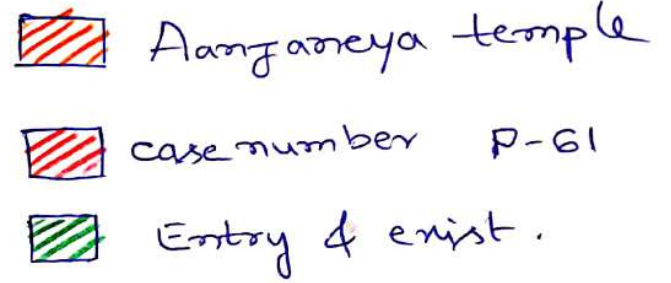 Aanjaneya temple
case number P-61
Entry & enist.